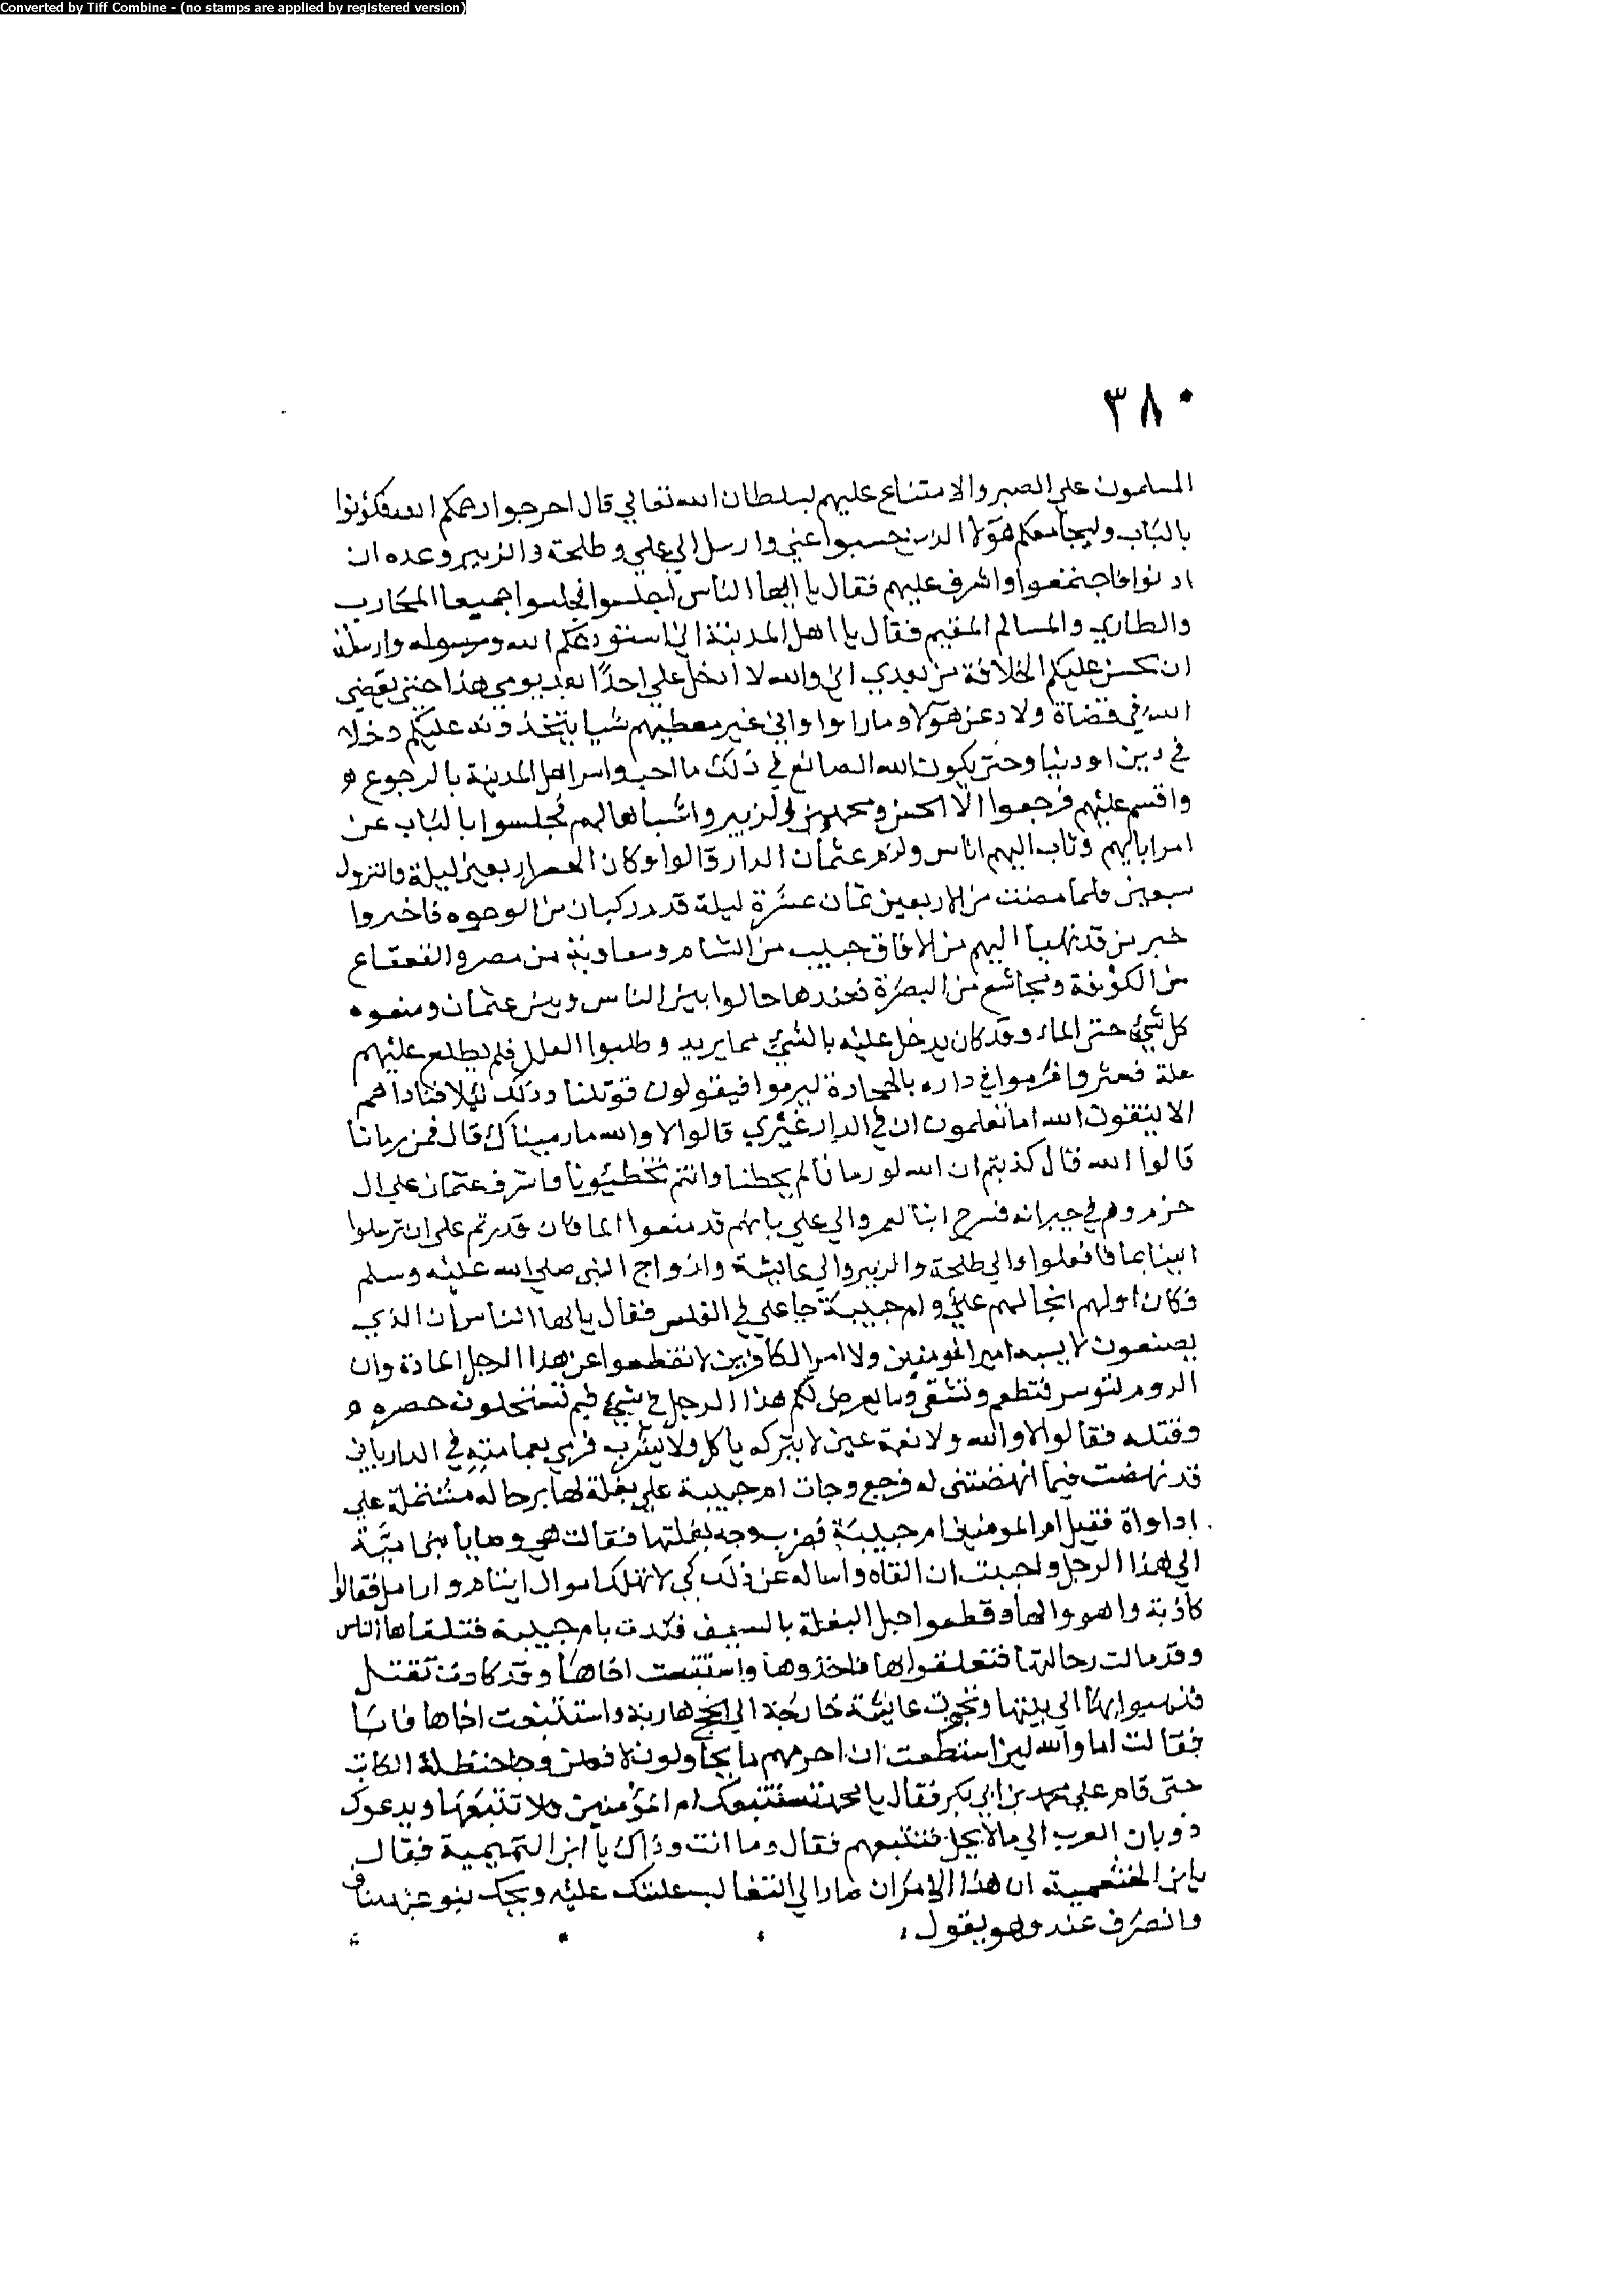 Converted by Tiff Combine - (no stamps are applied by registered version)
٣٨٠
المسلمون علي الصبر والامتناع عليهم بسلطان الله تعالي قال اخرجوا رحمكم الله فكونوا
بالباب وليجامعكم هؤلا الذين حسبوا عني وارسل الي علي وطلحة والزبير وعده ان
ادنوا فاجتمعوا واشرف عليهم فقال يا ايها الناس اجلسوا فجلسوا جميعا المحارب
والطاري والمسالم المقيم فقال يا اهل المدينة اني استودعكم الله
ان يحسن عليكم الخلافة من بعدي اني والله لا ادخل علي احدًا بعد يومي هذا حتي يقضي
الله في قضاة ولادعن هؤلا وما راوا واني غير معطيهم شيا يتخذونه عليكم دخلا
في دين او دنيا وحتي يكون الله الصانع في ذلك ما احب وامر اهل المدينة بالرجوع
واقسم عليهم فرجعوا الا الحسن ومحمد وابن الزبير واشباها لهم فجلسوا بالباب عن
امر ابايهم وثاب اليهم اناس ولزم عثمان الدار قالوا وكان الحصر اربعين ليلة والنزول
سبعين فلما مضت من الاربعين ثمان عشرة ليلة قدم ركبان من الوجوه فاخبروا
خبر من قد تهيا اليهم من الافاق حبيب من الشام ومعاوية من مصر والقعقاع
من الكوفة ومجاشع من البصرة فعندها حالوا بين الناس وبين عثمان ومنعوه
كل شي حتي الماء وقد كان يدخل عليه بالشي مما يريد وطلبوا العلل فلم يطلع عليهم
علة فعثروا في داره بالحجارة ليرموا فيقولون قوتلنا وذلك ليلا فناداهم
الا يتقون الله اما تعلمون ان في الدار غيري قالوا لا والله ما رميناك قال فمن رمانا
قالوا الله قال كذبتم ان الله لو رمانا لم يخطنا وانتم تخطيونا واشرف عثمان علي ال
حزم وهم في جيرانه فسرح ابنا لعمرو الي علي بانهم قد منعوا الما فان قدرتم علي ان ترسلوا
الينا بما فافعلوا والي طلحة والزبير والي عايشة وازواج النبي صلي الله عليه وسلم
فكان اولهم انجا لهم علي وام حبيبة جا علي في الغلس فقال يا ايها الناس ان الذي
يصنعون لا يسبه امر المومنين ولا امر الكافرين لا تقطعوا عن هذا الرجل المادة وان
الروم لتوسر فتطعم وتسقي وما يعرض لكم هذا الرجل في شي فبم تستحلون حصره
وقتله فقالوا لا والله ولا نعمة عين لا نتركه ياكل ولا يشرب فرمي بعمامته في الدار باني
قد نهضت فيما انهضتني له فرجع وجات ام حبيبة علي بغلة لها برحاله مشتملة علي
اداواة فقيل ام المومنين ام حبيبة فضرب وجه بغلتها فقالت
الي هذا الرجل واحببت ان القاه واساله عن ذلك كي لا تهلك اموال ايتام وارامل فقالوا
كاذبة واهووا لها وقطعوا حبل البغلة بالسيف فندت بام حبيبة فتلقاها الناس
وقد مالت رحالتها فتعلقوا بها فاخذوها وقد كادت تقتل
فذهبوا بها الي بيتها وتجهزت عايشة خارجة الي الحج هاربة واستتبعت اخاها فابا
فقالت اما والله لين استطعت ان احرمهم ما يحاولون لافعلن وجا حنظلة الكاتب
حتي قام علي محمد بن ابي بكر فقال يا محمد تستتبعك ام المؤمنين ولا تتبعها ويدعوك
ذوبان العرب الي ما لا يحل فتتبعهم فقال وما انت وذاك يا ابن التميمية فقال
يا بن الخثعمية ان هذا الامر ان صار الي التغالب غلبتك عليه ويحك بنو عبد مناف
وانصرف عنه وهو يقول